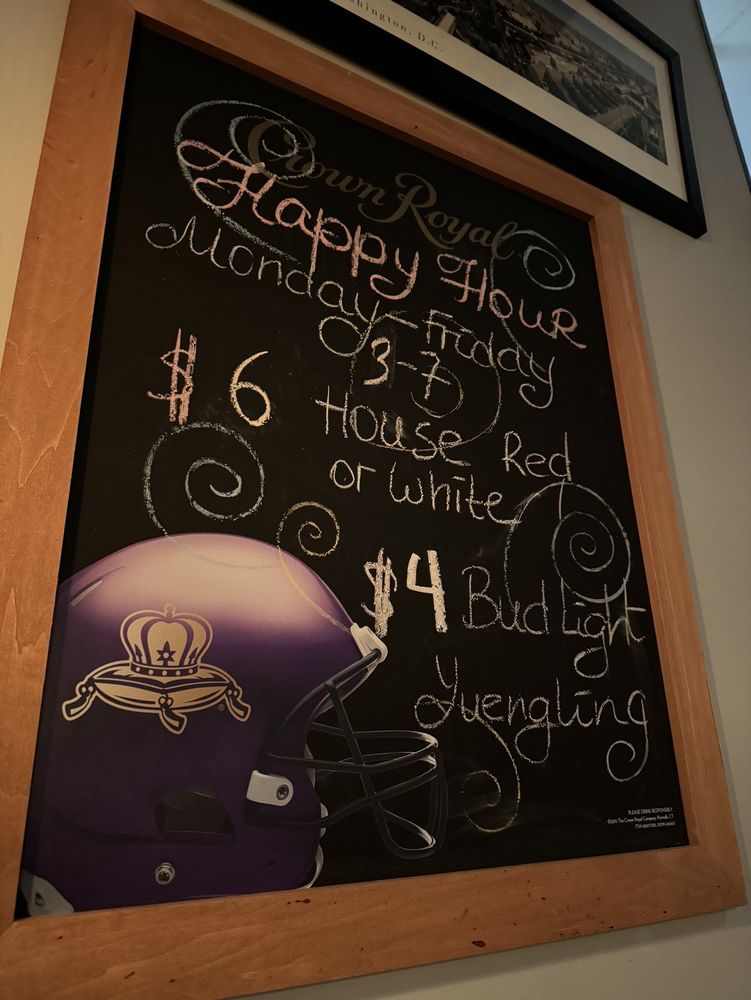 Washington, D.C.
Crown Royal
Happy Hour
Monday - Friday
3-7
$6 House Red
or White
$4 Bud Light
Yuengling
PLEASE DRINK RESPONSIBLY.
The Crown Royal Company, Norwalk, CT